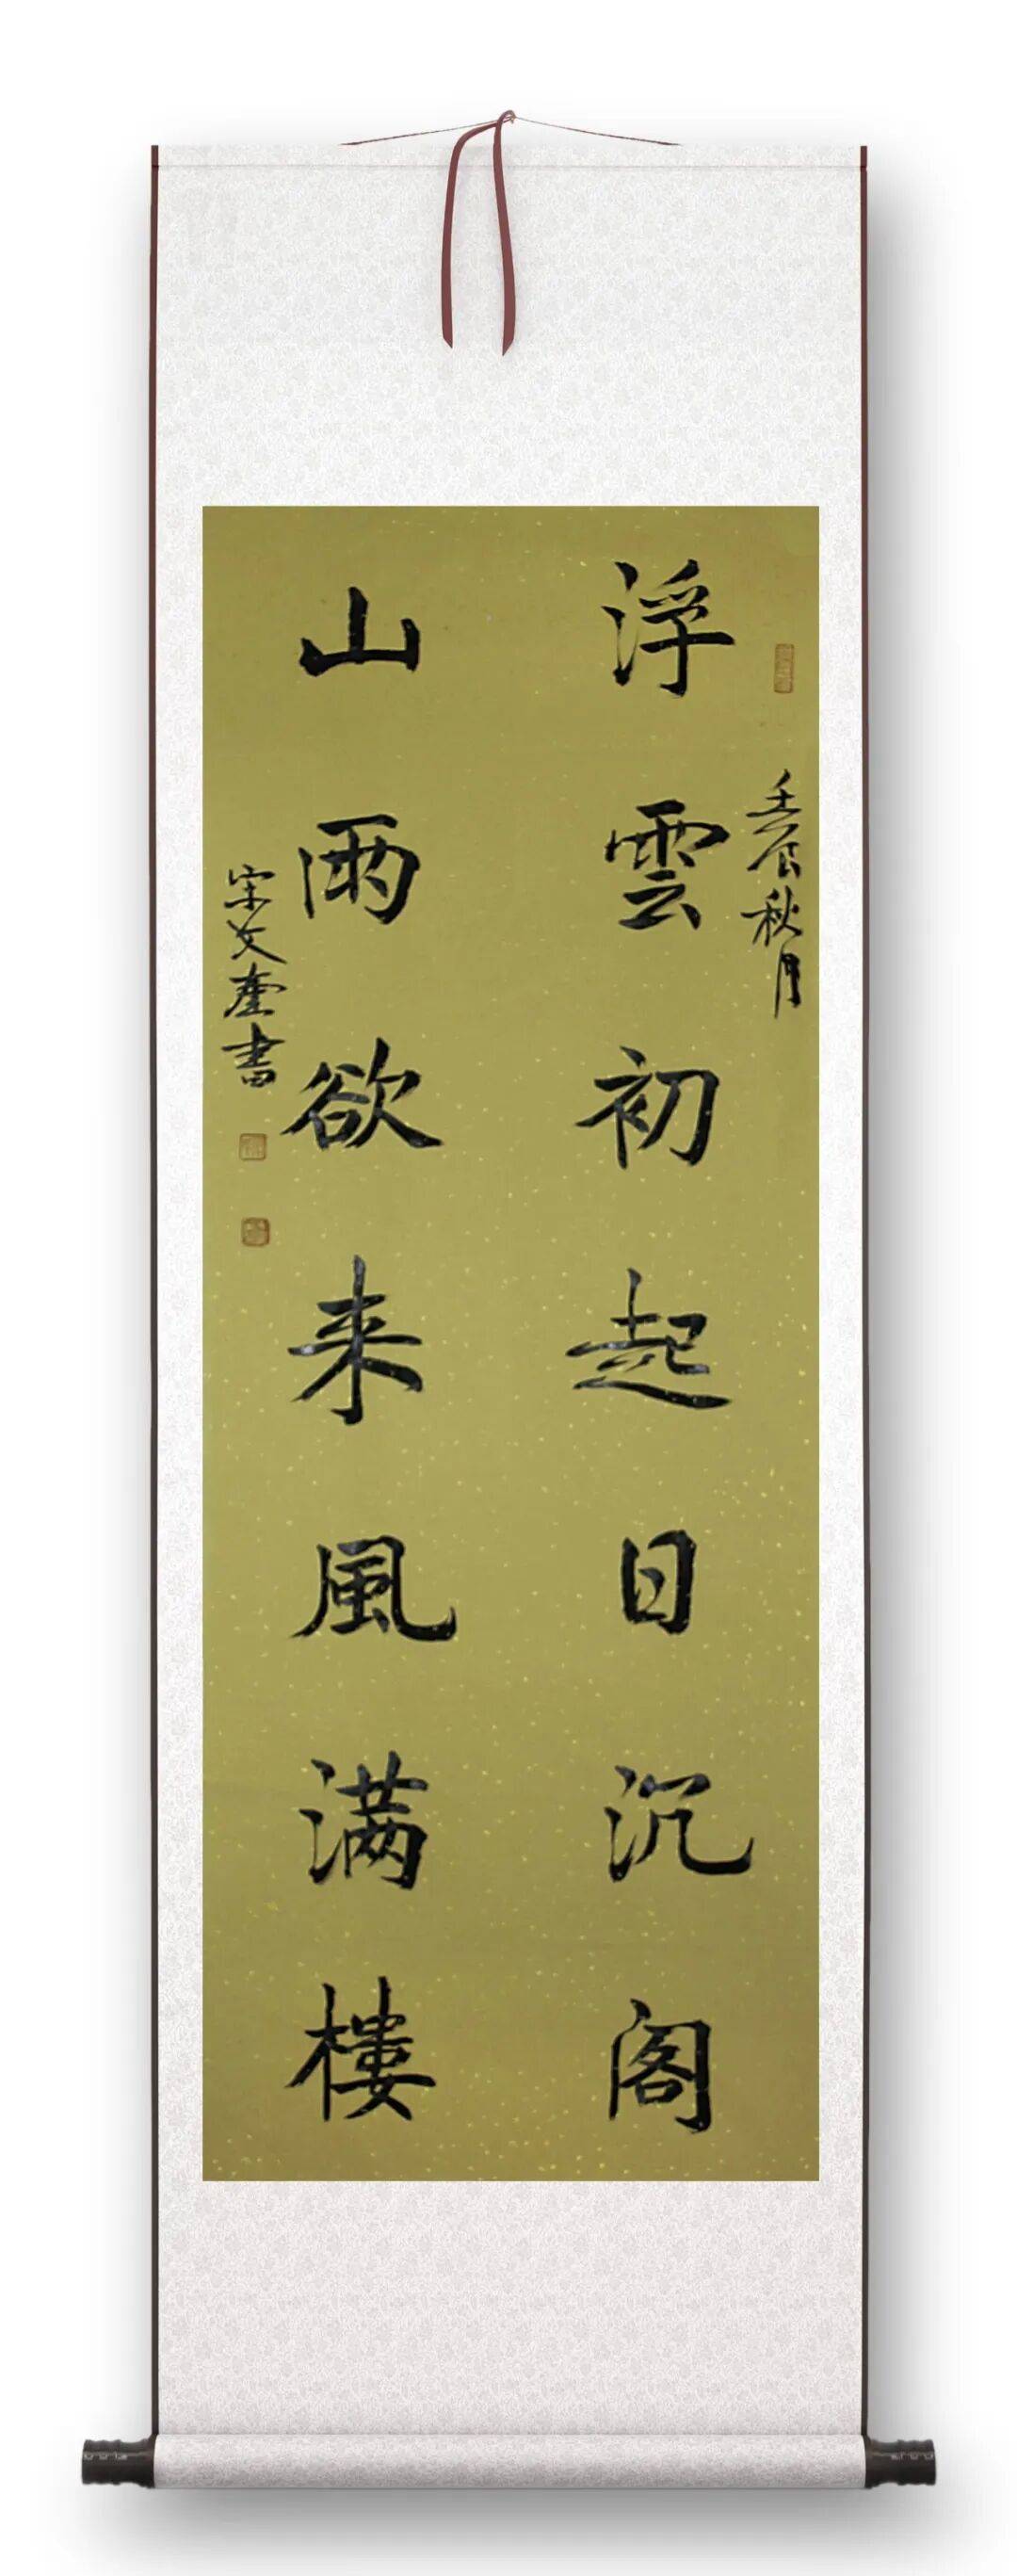 壬辰秋月
浮雲初起日沉阁
山雨欲来風满樓
宋文奎書